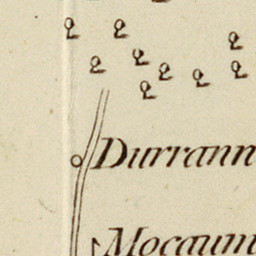 Durrann
Mocaum